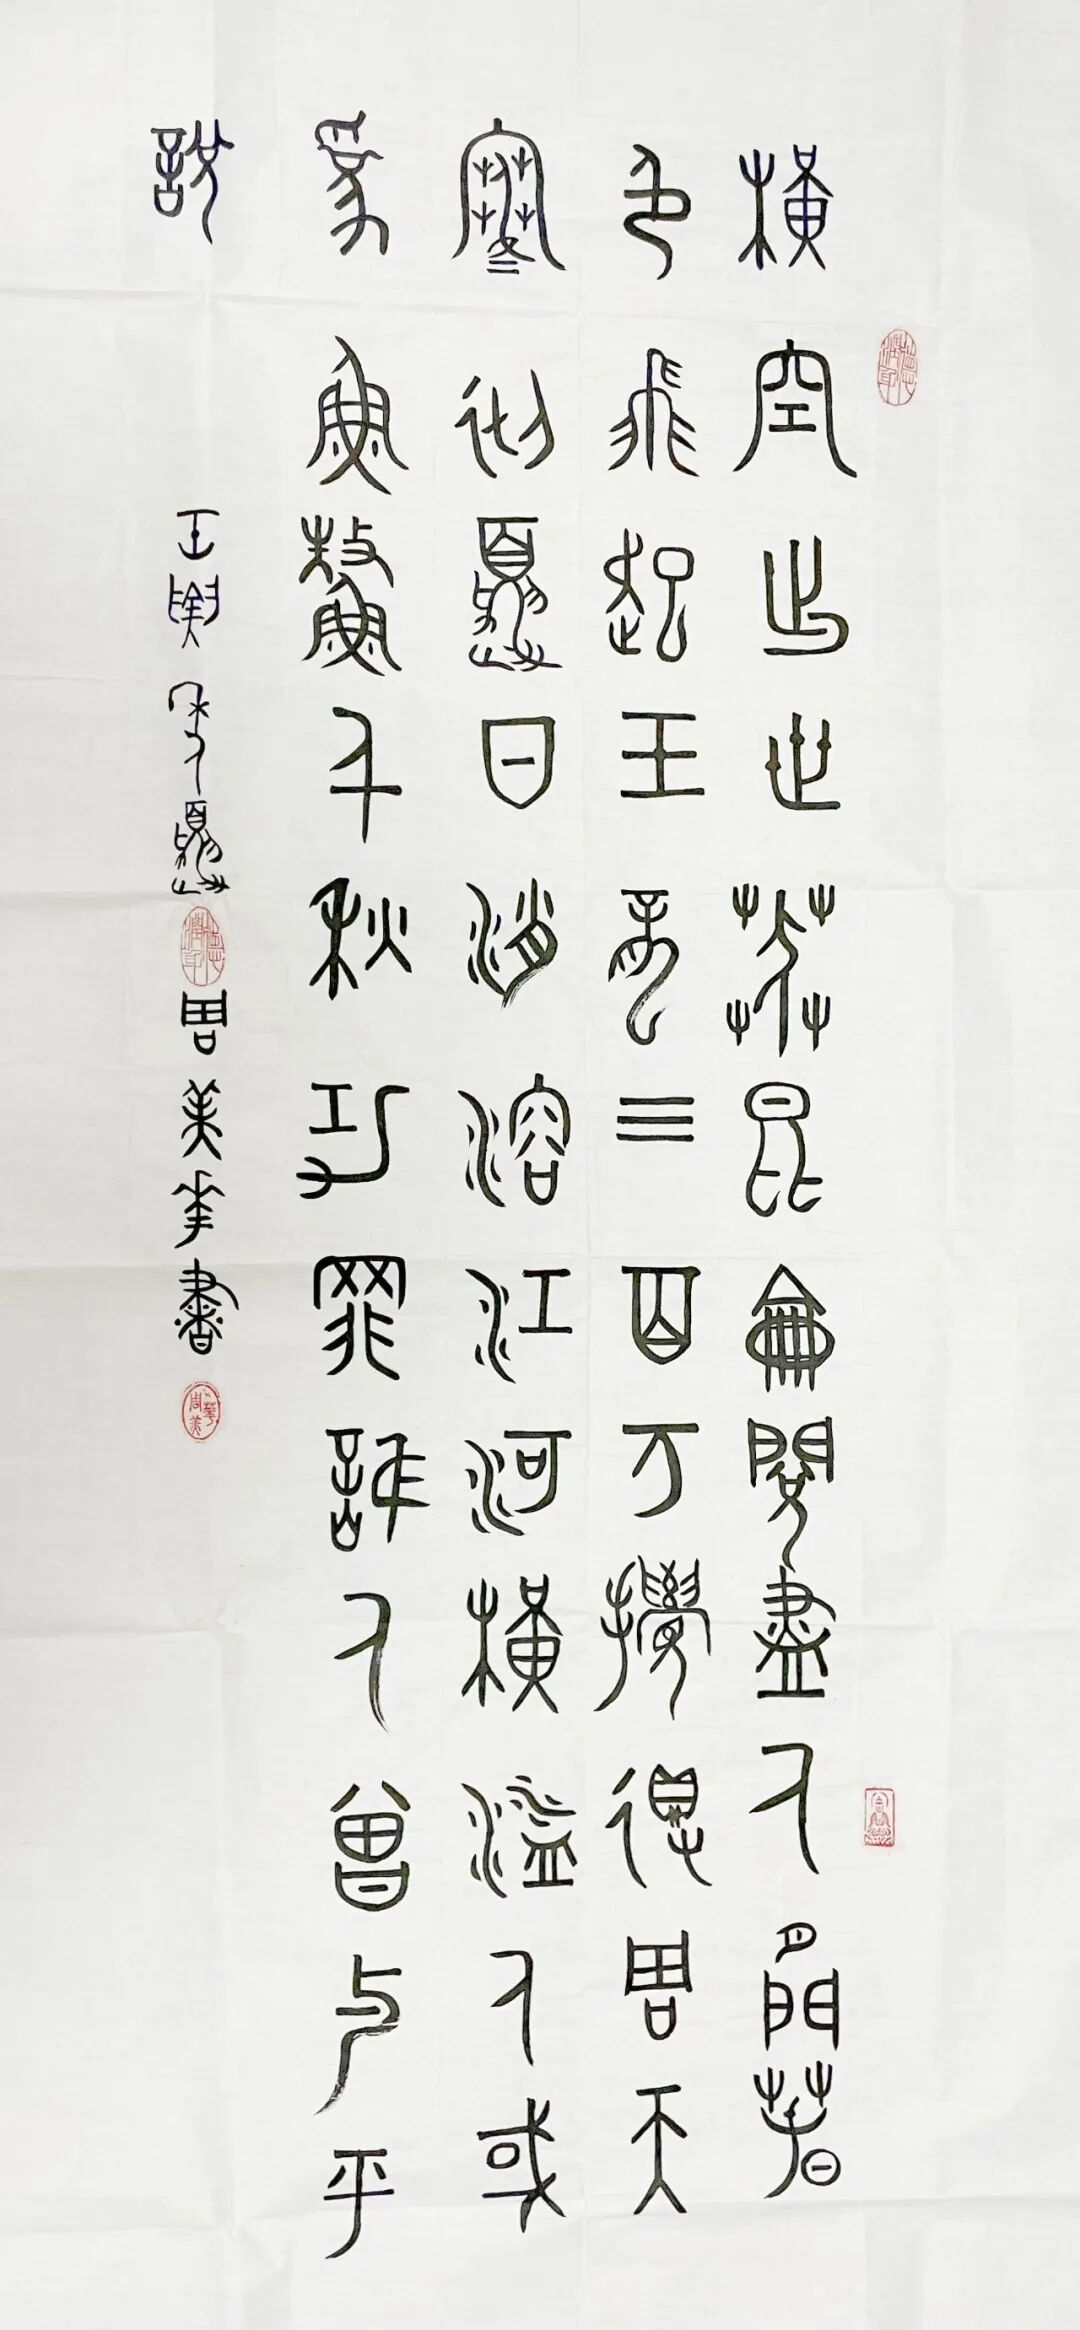 橫空出世莽昆侖閱盡人間春
色飛起玉龍三百万攪得周天
寒徹夏日消溶江河橫溢人或
為魚鱉千秋功罪誰人曾與評
說
壬寅季夏周美華書